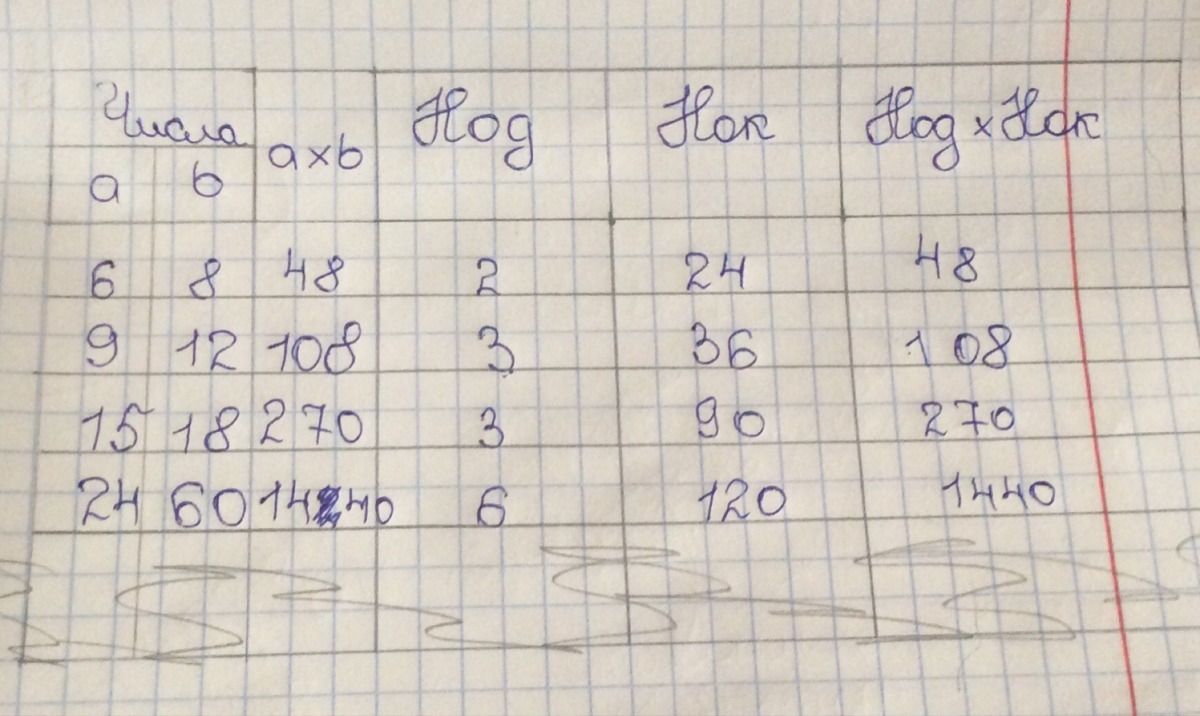 Числа a×b Нод Нок Нод × Нок
a b
6 8 48 2 24 48
9 12 108 3 36 108
15 18 270 3 90 270
24 60 1440 6 120 1440